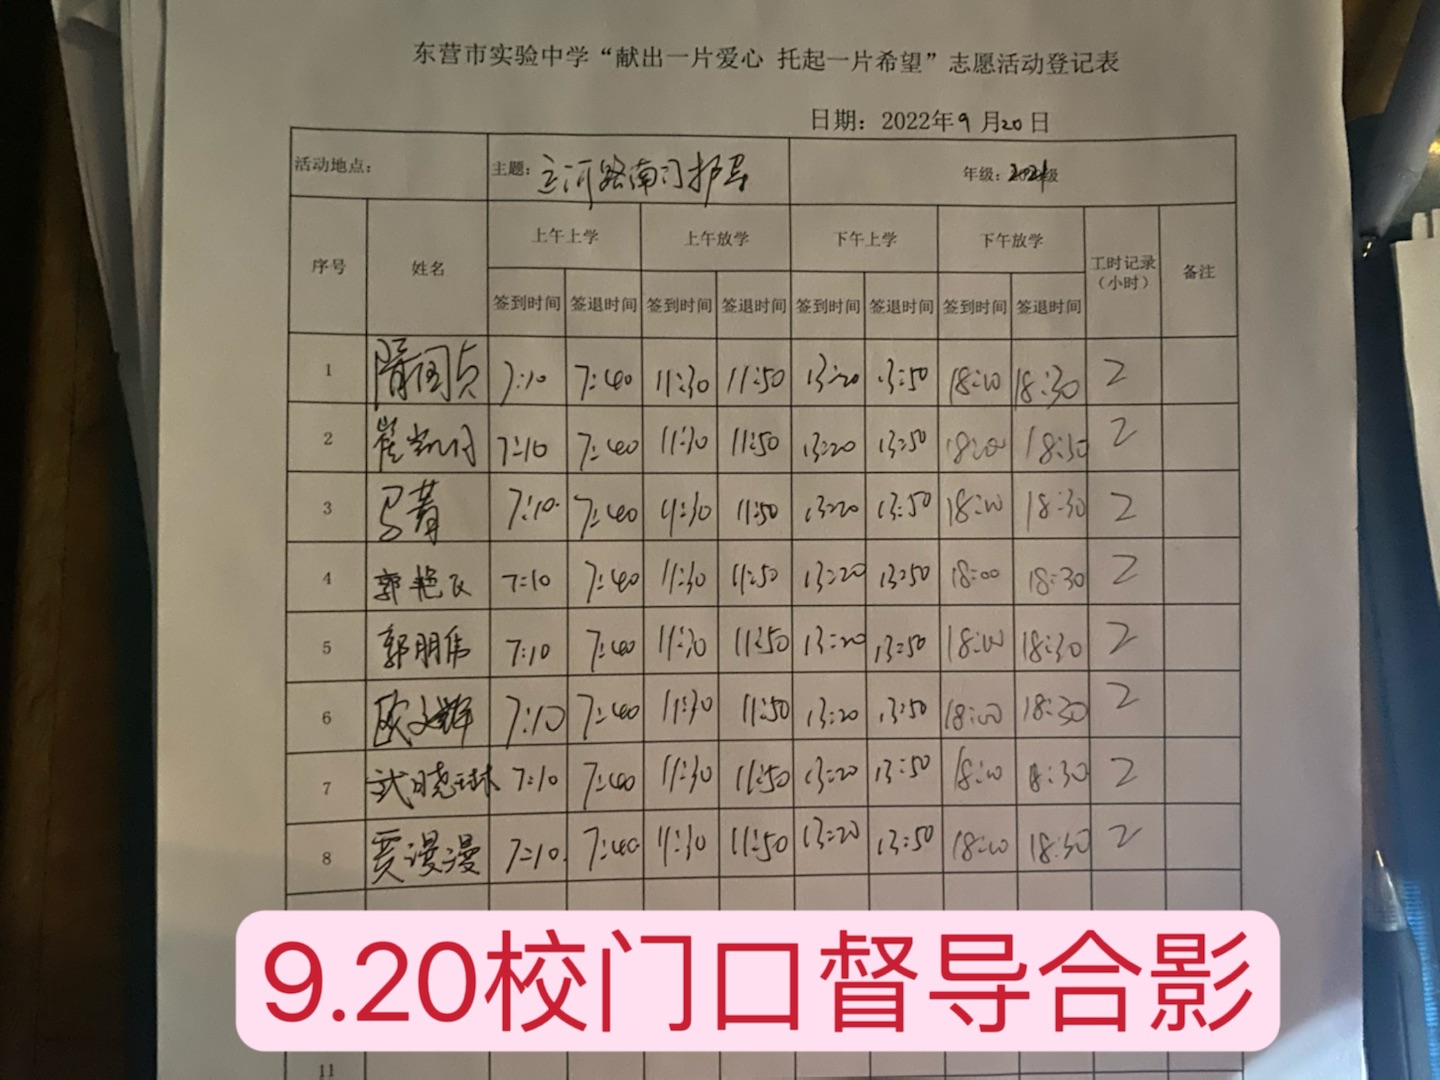 东营市实验中学“献出一片爱心 托起一片希望”志愿活动登记表
日期：2022年9月20日
活动地点： 主题：运河路南门护导 年级：2021级
序号 姓名 上午上学 上午放学 下午上学 下午放学 工时记录（小时） 备注
签到时间 签退时间 签到时间 签退时间 签到时间 签退时间 签到时间 签退时间
1 隋国贞 7:10 7:40 11:30 11:50 13:20 13:50 18:00 18:30 2
2 崔凯 7:10 7:40 11:30 11:50 13:20 13:50 18:00 18:30 2
3 马菁 7:10 7:40 11:30 11:50 13:20 13:50 18:00 18:30 2
4 郭艳飞 7:10 7:40 11:30 11:50 13:20 13:50 18:00 18:30 2
5 郭朋伟 7:10 7:40 11:30 11:50 13:20 13:50 18:00 18:30 2
6 欧文辉 7:10 7:40 11:30 11:50 13:20 13:50 18:00 18:30 2
7 武晓琳 7:10 7:40 11:30 11:50 13:20 13:50 18:00 18:30 2
8 贾漫漫 7:10 7:40 11:30 11:50 13:20 13:50 18:00 18:30 2
9.20校门口督导合影
11